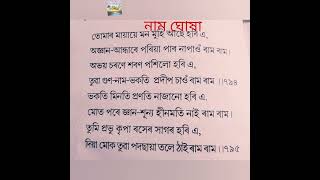 নাম ঘোষা
তোমাৰ মায়ায়ে মন মুহি আছে হৰি এ,
অজ্ঞান-আন্ধাৰে পৰিয়া পাৰ নাপাওঁ ৰাম ৰাম।
অভয় চৰণে শৰণ পশিলো হৰি এ,
তুৱা গুণ-নাম-ভকতি প্ৰদীপ চাওঁ ৰাম ৰাম ।।৭৯৪
ভকতি মিনতি প্ৰণতি নাজানো হৰি এ.
মোত পৰে জ্ঞান-শূন্য হীনমতি নাই ৰাম ৰাম।
তুমি প্ৰভু কৃপা ৰসেৰ সাগৰ হৰি এ,
দিয়া মোক তুৱা পদছায়া তলে ঠাই ৰাম ৰাম ।।৭৯৫